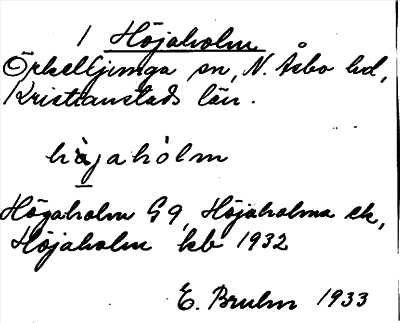 1 Höjaholm
Örkelljunga sn, N. Åsbo hd,
Kristianstads län.
hàjahòlm
Högaholm G9, Höjaholma ek,
Höjaholm kb 1932
E. Bruhn 1933